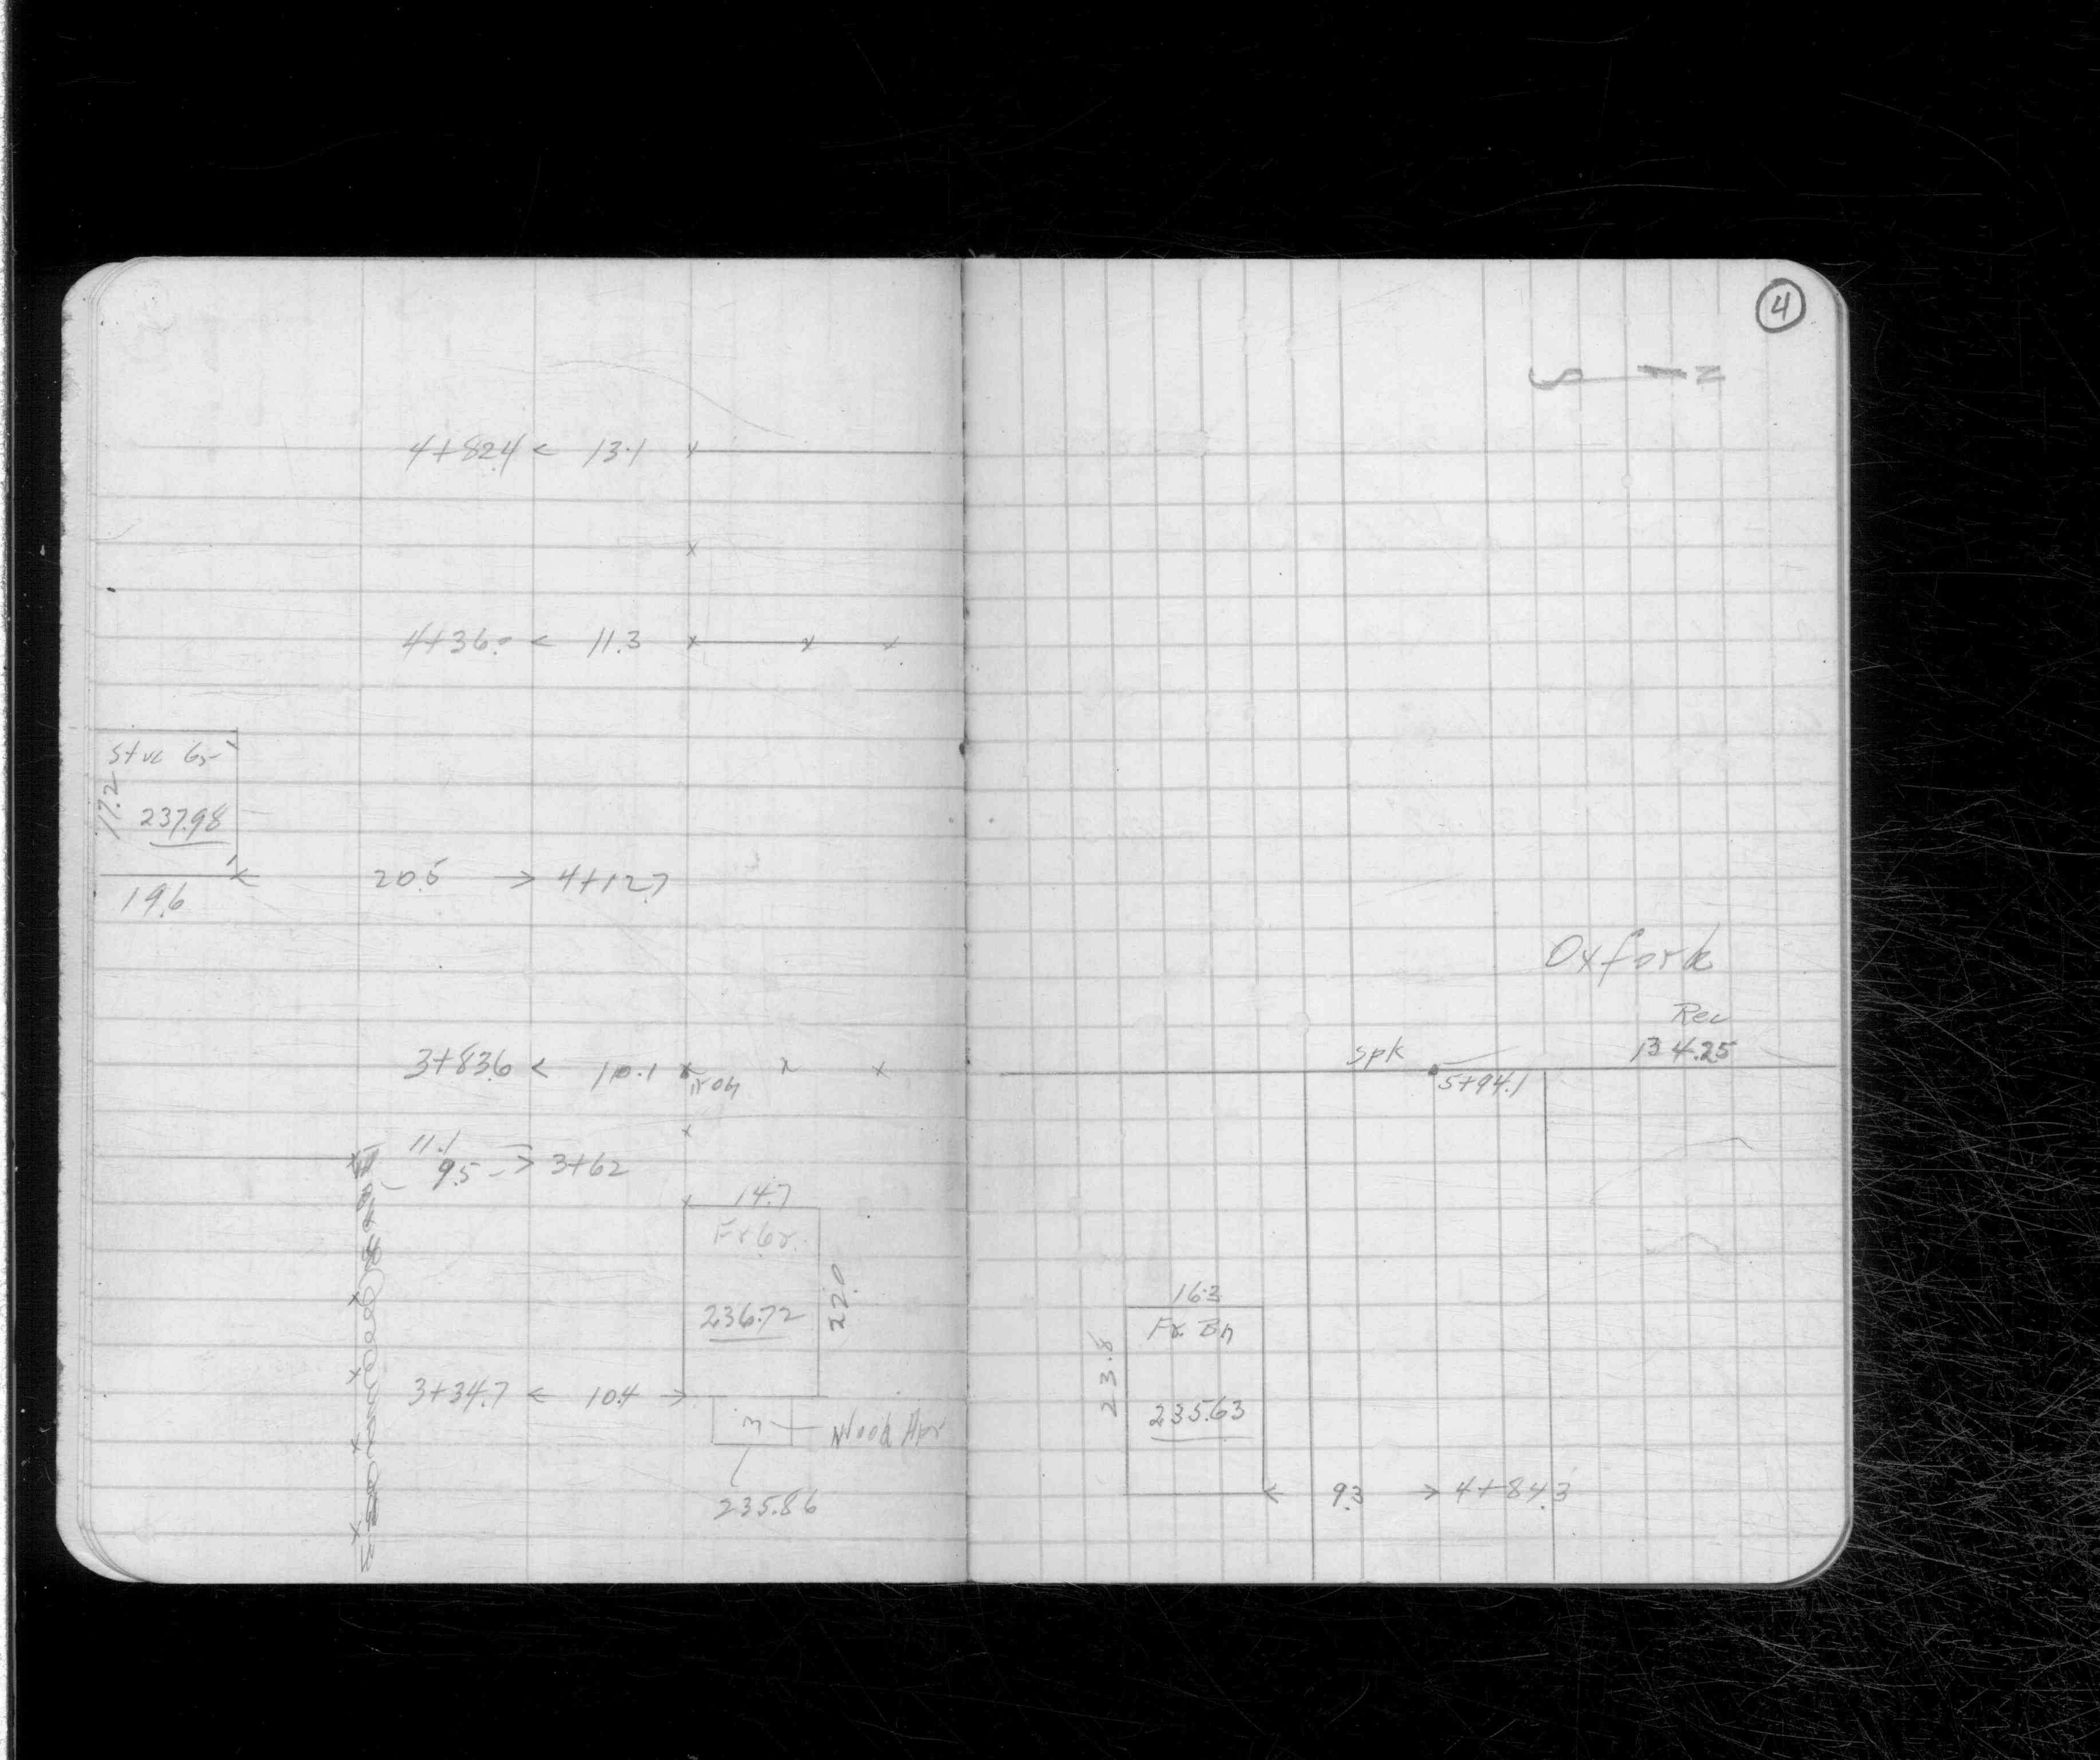 4+82.4 < 13.1
4+36.0 < 11.3
Stuc Gr
17.2
237.98
20.5 → 4+12.7
19.6
3+83.6 < 10.1
iron
11.1
9.5 → 3+62
14.7
Fr Gr.
236.72
22.0
3+34.7 < 10.4 →
Wood Apr
235.86
4
S N
Oxford
Rec
134.25
Spk
5+94.1
16.3
Fr. Bn
23.8
235.63
< 9.3 → 4+84.3